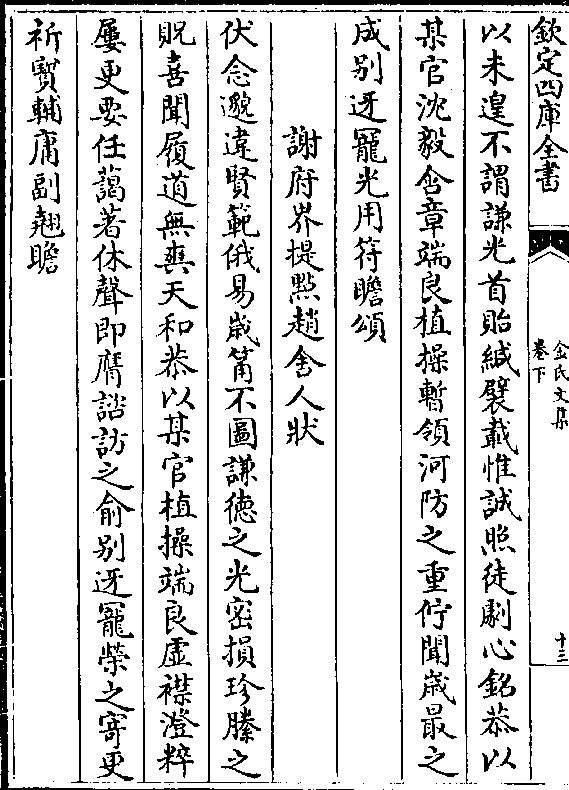 欽定四庫全書
金氏文集
卷下
十三
以未遑不謂謙光首貽緘襞載惟誠照徒劇心銘恭以
某官沈毅含章端良植操暫領河防之重佇聞歲最之
成别迓寵光用符瞻頌
謝府界提㸃趙舍人狀
伏念邈違賢範俄易歲籥不圖謙德之光密損珍縢之
貺喜聞履道無爽天和恭以某官植操端良虚襟澄粹
屢更要任藹著休聲即膺諮訪之俞别迓寵榮之寄更
祈寳輔庸副翹瞻